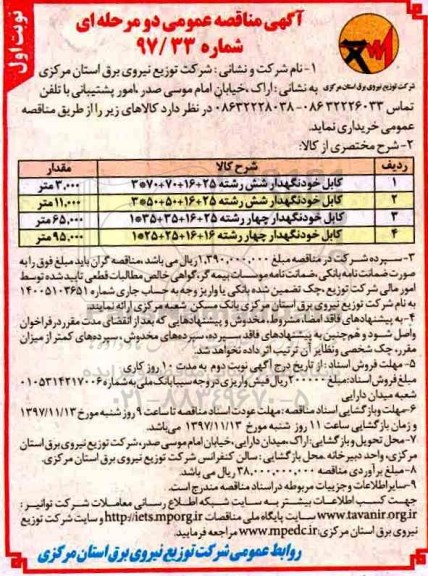 نوبت اول
آگهی مناقصه عمومی دو مرحله ای
شماره ۹۷/۳۳
شرکت توزیع نیروی برق استان مرکزی
۱- نام شرکت و نشانی : شرکت توزیع نیروی برق استان مرکزی
به نشانی : اراک ،خیابان امام موسی صدر ،امور پشتیبانی با تلفن
تماس ۳۲۲۲۶۰۳۳-۰۸۶ ۰۸۶۳۲۲۲۸۰۳۸ در نظر دارد کالاهای زیر را از طریق مناقصه
عمومی خریداری نماید.
۲- شرح مختصری از کالا:
ردیف شرح کالا مقدار
۱ کابل خودنگهدار شش رشته ۲۵+۱۶+۷۰+۷۰*۳ ۳,۰۰۰ متر
۲ کابل خودنگهدار شش رشته ۲۵+۱۶+۵۰+۵۰*۳ ۱۱,۰۰۰ متر
۳ کابل خودنگهدار چهار رشته ۲۵+۱۶+۳۵+۳۵*۱ ۶۵,۰۰۰ متر
۴ کابل خودنگهدار چهار رشته ۱۶+۱۶+۲۵+۲۵*۱ ۹۵,۰۰۰ متر
۳- سپرده شرکت در مناقصه مبلغ ۱,۳۹۰,۰۰۰,۰۰۰ ریال می باشد ،مناقصه گران باید مبلغ فوق را به
صورت ضمانت نامه بانکی ،ضمانت نامه موسسات بیمه گر،گواهی خالص مطالبات قطعی تایید شده توسط
امور مالی شرکت توزیع ،چک تضمین شده بانکی یا واریز وجه به حساب جاری شماره ۱۴۰۰۵۱۰۳۶۵۱
به نام شرکت توزیع نیروی برق استان مرکزی بانک مسکن شعبه مرکزی ارائه نمایند.
۴- به پیشنهادهای فاقد امضا، مشروط ، مخدوش و پیشنهادهایی که بعد از انقضای مدت مقرر در فراخوان
واصل شود و هم چنین به پیشنهادهای فاقد سپرده، سپرده‌های مخدوش ، سپرده‌های کمتر از میزان
مقرر، چک شخصی و نظایر آن ترتیب اثر داده نخواهد شد.
۵- مهلت فروش اسناد : از تاریخ درج آگهی نوبت دوم به مدت ۱۰ روز کاری
مبلغ فروش اسناد: مبلغ ۲۰۰۰۰۰ ریال فیش واریزی در وجه سیبا بانک ملی به شماره ۰۱۰۵۳۱۴۲۱۷۰۰۶
شعبه میدان دارایی
۶- مهلت و بازگشایی اسناد مناقصه : مهلت عودت اسناد مناقصه تا ساعت ۹ روز شنبه مورخ ۱۳۹۷/۱۱/۱۳
و زمان بازگشایی ساعت ۱۱ روز شنبه مورخ ۱۳۹۷/۱۱/۱۳ می باشد.
۷- محل تحویل و بازگشایی: اراک،میدان دارایی،خیابان امام موسی صدر،شرکت توزیع نیروی برق استان
مرکزی، واحد دبیرخانه محل بازگشایی : سالن کنفرانس شرکت توزیع نیروی برق استان مرکزی.
۸- مبلغ برآوردی مناقصه ۳۸,۰۰۰,۰۰۰,۰۰۰ ریال می باشد.
۹- سایر اطلاعات و جزییات مربوطه در اسناد مناقصه مندرج است.
جهت کسب اطلاعات بیشتر به سایت شبکه اطلاع رسانی معاملات شرکت توانیر :
www.tavanir.org.ir سایت پایگاه ملی مناقصات http://iets.mporg.ir و سایت شرکت توزیع
نیروی برق استان مرکزی: www.mpedc.ir مراجعه فرمایید.
روابط عمومی شرکت توزیع نیروی برق استان مرکزی
۰۲۱-۸۸۳۴۹۶۷۰-۵